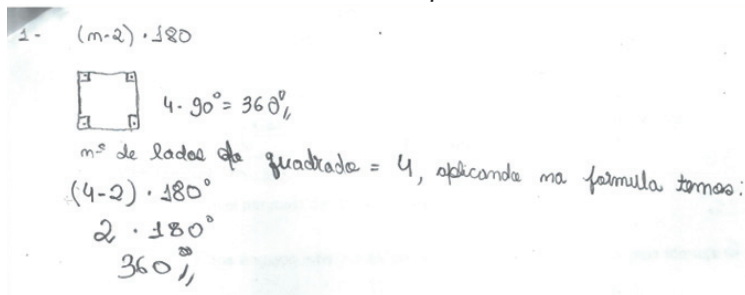 1- (n-2) · 180
4 · 90° = 360°//
nº de lados do quadrado = 4, aplicando na formula temos:
(4-2) · 180°
2 · 180°
360°//